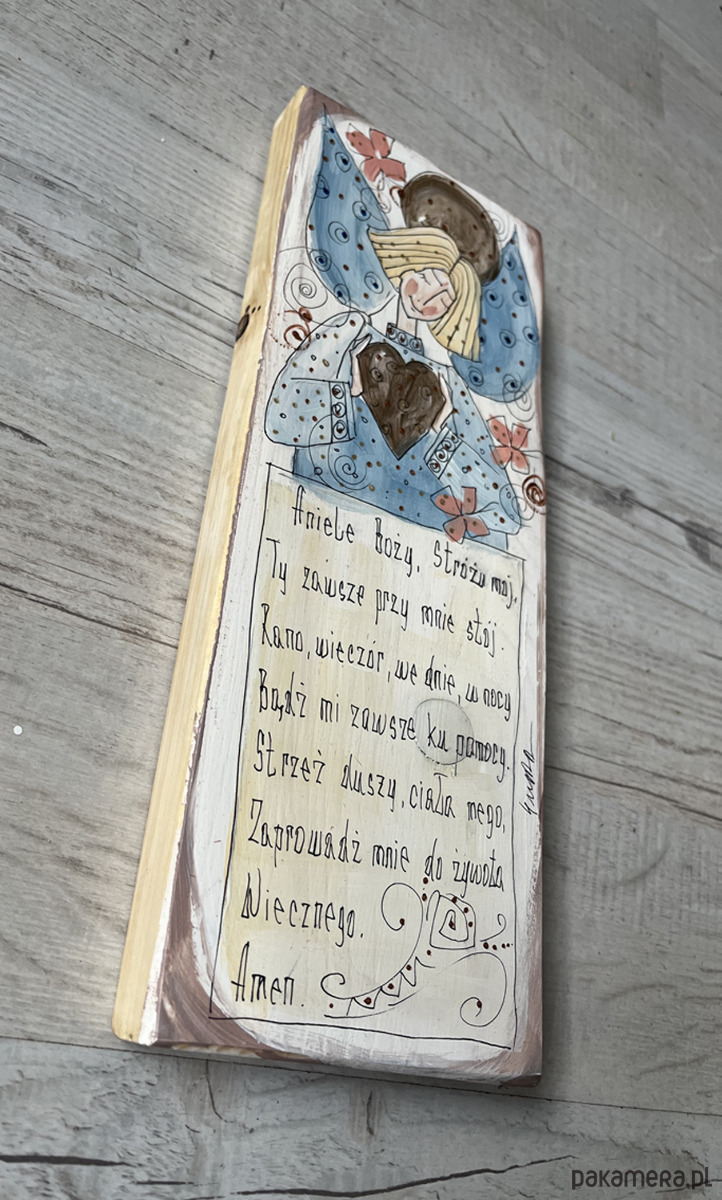 Aniele Boży, Stróżu mój,
Ty zawsze przy mnie stój.
Rano, wieczór, we dnie, w nocy
Bądź mi zawsze ku pomocy.
Strzeż duszy, ciała mego,
Zaprowadź mnie do żywota
Wiecznego.
Amen.
pakamera.pl